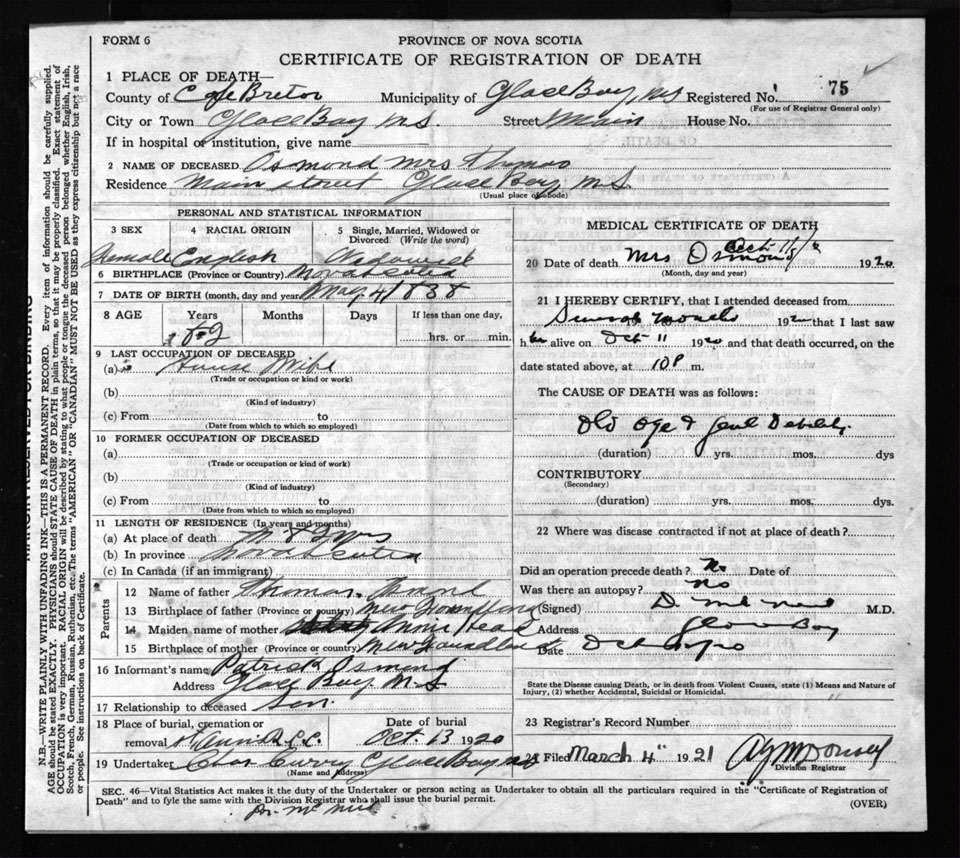 FORM 6
PROVINCE OF NOVA SCOTIA
CERTIFICATE OF REGISTRATION OF DEATH
1 PLACE OF DEATH—
County of Cape Breton Municipality of Glace Bay, N.S. Registered No. 75
(For use of Registrar General only)
City or Town Glace Bay N.S. Street Main House No.
If in hospital or institution, give name
2 NAME OF DECEASED Osmond Mrs Thomas
Residence Main Street Glace Bay, N.S.
(Usual place of abode)
PERSONAL AND STATISTICAL INFORMATION
3 SEX
4 RACIAL ORIGIN
5 Single, Married, Widowed or Divorced (Write the word)
Female English Widowed
6 BIRTHPLACE (Province or Country) Nova Scotia
7 DATE OF BIRTH (month, day and year) May 4 1838
8 AGE Years Months Days If less than one day,
82 hrs. or min.
9 LAST OCCUPATION OF DECEASED
(a) House Wife
(Trade or occupation or kind or work)
(b)
(Kind of industry)
(c) From to
(Date from which to which so employed)
10 FORMER OCCUPATION OF DECEASED
(a)
(Trade or occupation or kind of work)
(b)
(Kind of industry)
(c) From to
(Date from which to which so employed)
11 LENGTH OF RESIDENCE (In years and months)
(a) At place of death yrs
(b) In province Nova Scotia
(c) In Canada (if an immigrant)
Parents
12 Name of father Thomas Osmond
13 Birthplace of father (Province or country) New Foundland
14 Maiden name of mother Annie Head
15 Birthplace of mother (Province or country) New Foundland
16 Informant's name Patrick Osmond
Address Glace Bay N.S
17 Relationship to deceased Son.
18 Place of burial, cremation or removal St Anns R.C.C.
Date of burial Oct. 13 1920
19 Undertaker Chas Curry Glace Bay N.S
(Name and Address)
MEDICAL CERTIFICATE OF DEATH
20 Date of death Mrs Osmond Oct. 1920
(Month, day and year)
21 I HEREBY CERTIFY, that I attended deceased from
Several months 1920 that I last saw
her alive on Oct 11 1920 and that death occurred, on the
date stated above, at 10 P m.
The CAUSE OF DEATH was as follows:
Old age & Genl Debility.
(duration) yrs. mos. dys
CONTRIBUTORY
(Secondary)
(duration) yrs. mos. dys.
22 Where was disease contracted if not at place of death?
Did an operation precede death? No Date of
Was there an autopsy? No
(Signed) D. McNeil M.D.
Address Glace Bay
Date Oct
State the Disease causing Death, or in death from Violent Causes, state (1) Means and Nature of Injury, (2) whether Accidental, Suicidal or Homicidal.
23 Registrar's Record Number
24 Filed March 4" 1921
Division Registrar
SEC. 46—Vital Statistics Act makes it the duty of the Undertaker or person acting as Undertaker to obtain all the particulars required in the "Certificate of Registration of
Death" and to fyle the same with the Division Registrar who shall issue the burial permit.
(OVER)
Dr. McNeil
MARGIN RESERVED FOR BINDING
N.B.—WRITE PLAINLY WITH UNFADING INK—THIS IS A PERMANENT RECORD. Every item of information should be carefully supplied.
AGE should be stated EXACTLY. PHYSICIANS should STATE CAUSE OF DEATH in plain terms, so that it may be properly classified. Exact statement of
OCCUPATION is very important. RACIAL ORIGIN will be described by stating to what people or tongue the deceased person belonged whether English, Irish,
Scotch, French, German, Russian, Ruthenian, etc. The terms "AMERICAN" OR "CANADIAN" MUST NOT BE USED as they express citizenship but not a race
or people. See instructions on back of Certificate.